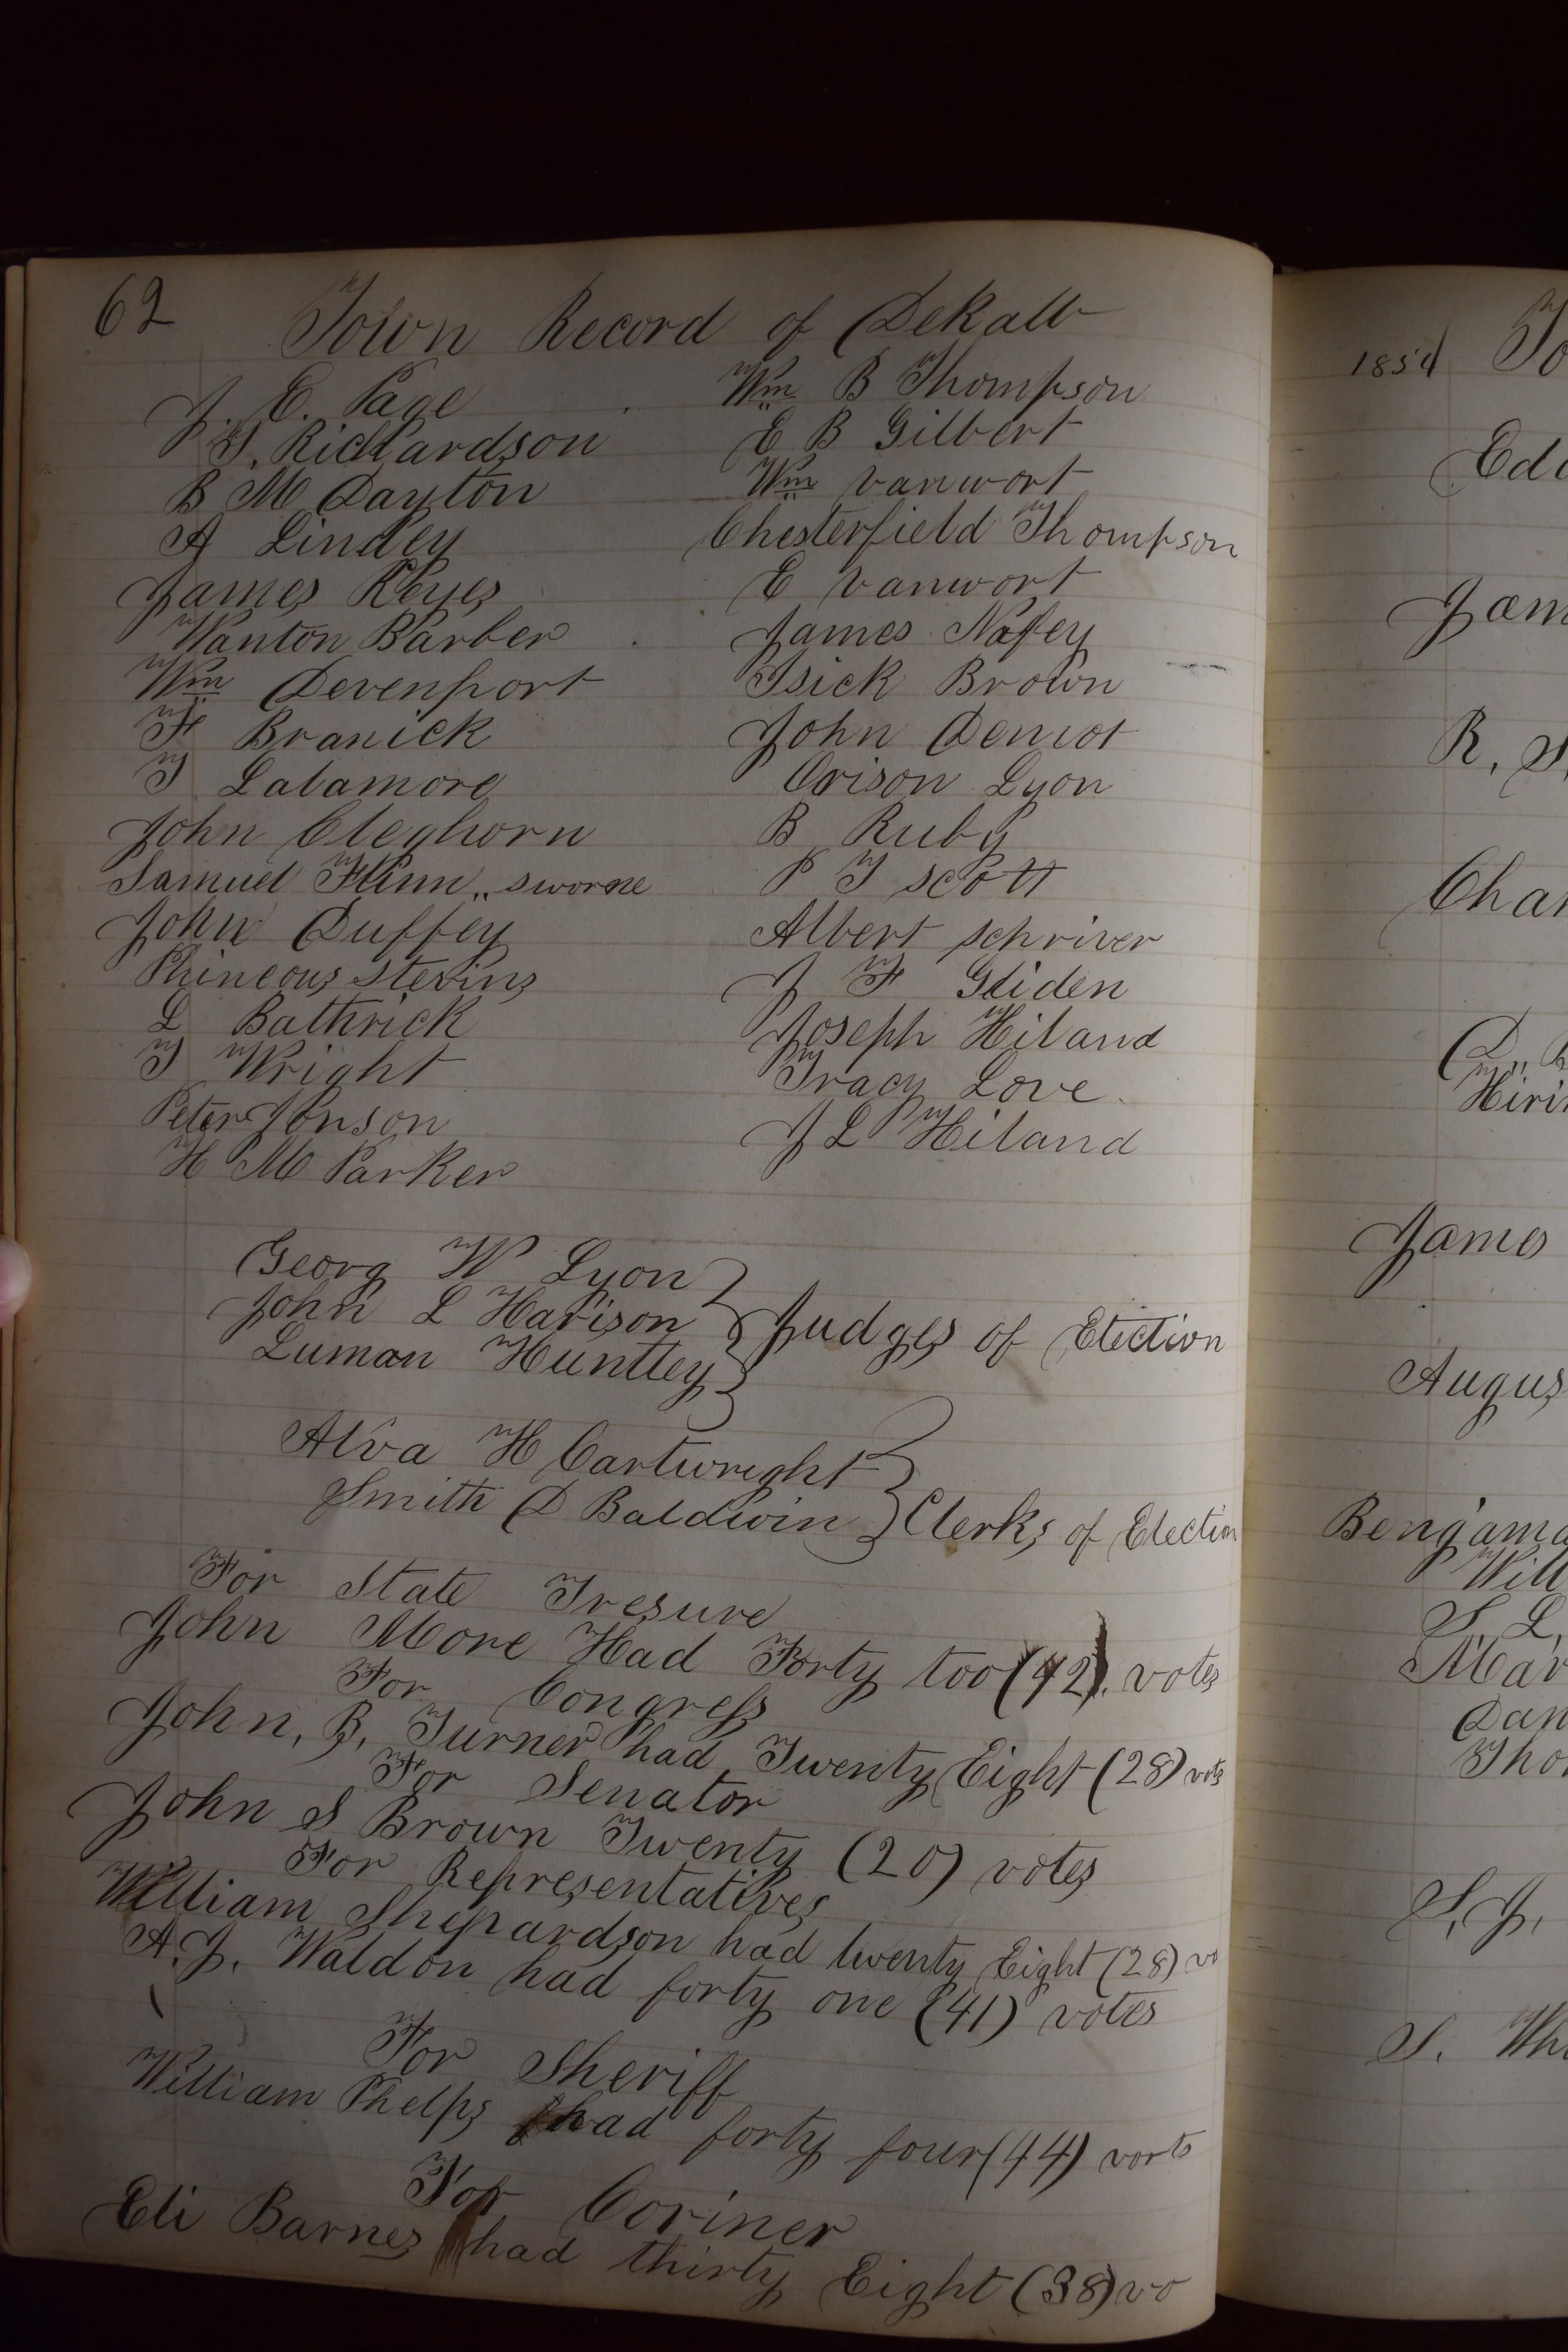 62 Town Record of Dekalb
J. E. Page
T. Richardson
B M Dayton
A Lindey
James Keyes
Wanton Barber
Wm Devenport
F Branick
T Latamore
John Cleghorn
Samuel Flinn ,, sworne
John Duffey
Phineous Stevins
L Bathrick
T Wright
Peter Jonson
H M Parker
Wm B Thompson
E B Gilbert
Wm vanwort
Chesterfield Thompson
E vanwort
James Nafey
Isick Brown
John Demot
Orison Lyon
B Ruby
P T scott
Albert schriver
J F Gliden
Joseph Hiland
Tracy Love
J L Hiland
Georg W Lyon
John L Harison } Judges of Election
Luman Huntley
Alva H Cartwright
Smith D Baldwin } Clerks of Election
For State Tresure
John More Had Forty too (42). votes
For Congress
John, B, Turner had Twenty Eight (28) vots
For Senator
John S Brown Twenty (20) votes
For Representatives
William Shepardson had twenty Eight (28) vo
A. J. Waldon had forty one (41) votes
For Sheriff
William Phelps had forty four (44) vorts
For Coriner
Eli Barnes had thirty Eight (38) vo
1854 To
Edu
Jam
R. S.
Char
D,, B
Hiri
James
Augus
Bengama
Will
S. L.
Mar
Dan
Tho
S. J.
S. Wh